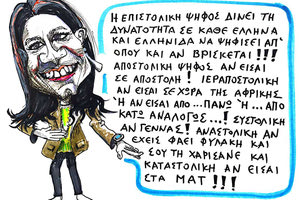 Η ΕΠΙΣΤΟΛΙΚΗ ΨΗΦΟΣ ΔΙΝΕΙ ΤΗ
ΔΥΝΑΤΟΤΗΤΑ ΣΕ ΚΑΘΕ ΕΛΛΗΝΑ
ΚΑΙ ΕΛΛΗΝΙΔΑ ΝΑ ΨΗΦΙΣΕΙ ΑΠ'
ΟΠΟΥ ΚΑΙ ΑΝ ΒΡΙΣΚΕΤΑΙ !!!
ΑΠΟΣΤΟΛΙΚΗ ΨΗΦΟΣ ΑΝ ΕΙΣΑΙ
ΣΕ ΑΠΟΣΤΟΛΗ ! ΙΕΡΑΠΟΣΤΟΛΙΚΗ
ΑΝ ΕΙΣΑΙ ΣΕ ΧΩΡΑ ΤΗΣ ΑΦΡΙΚΗΣ
Ή ΑΝ ΕΙΣΑΙ ΑΠΟ ...ΠΑΝΩ Ή ...ΑΠΟ
ΚΑΤΩ ΑΝΑΛΟΓΩΣ ...! ΣΥΣΤΟΛΙΚΗ
ΑΝ ΓΕΝΝΑΣ! ΑΝΑΣΤΟΛΙΚΗ ΑΝ
ΕΧΕΙΣ ΦΑΕΙ ΦΥΛΑΚΗ ΚΑΙ
ΣΟΥ ΤΗ ΧΑΡΙΣΑΝΕ ΚΑΙ
ΚΑΤΑΣΤΟΛΙΚΗ ΑΝ ΕΙΣΑΙ
ΣΤΑ ΜΑΤ !!!